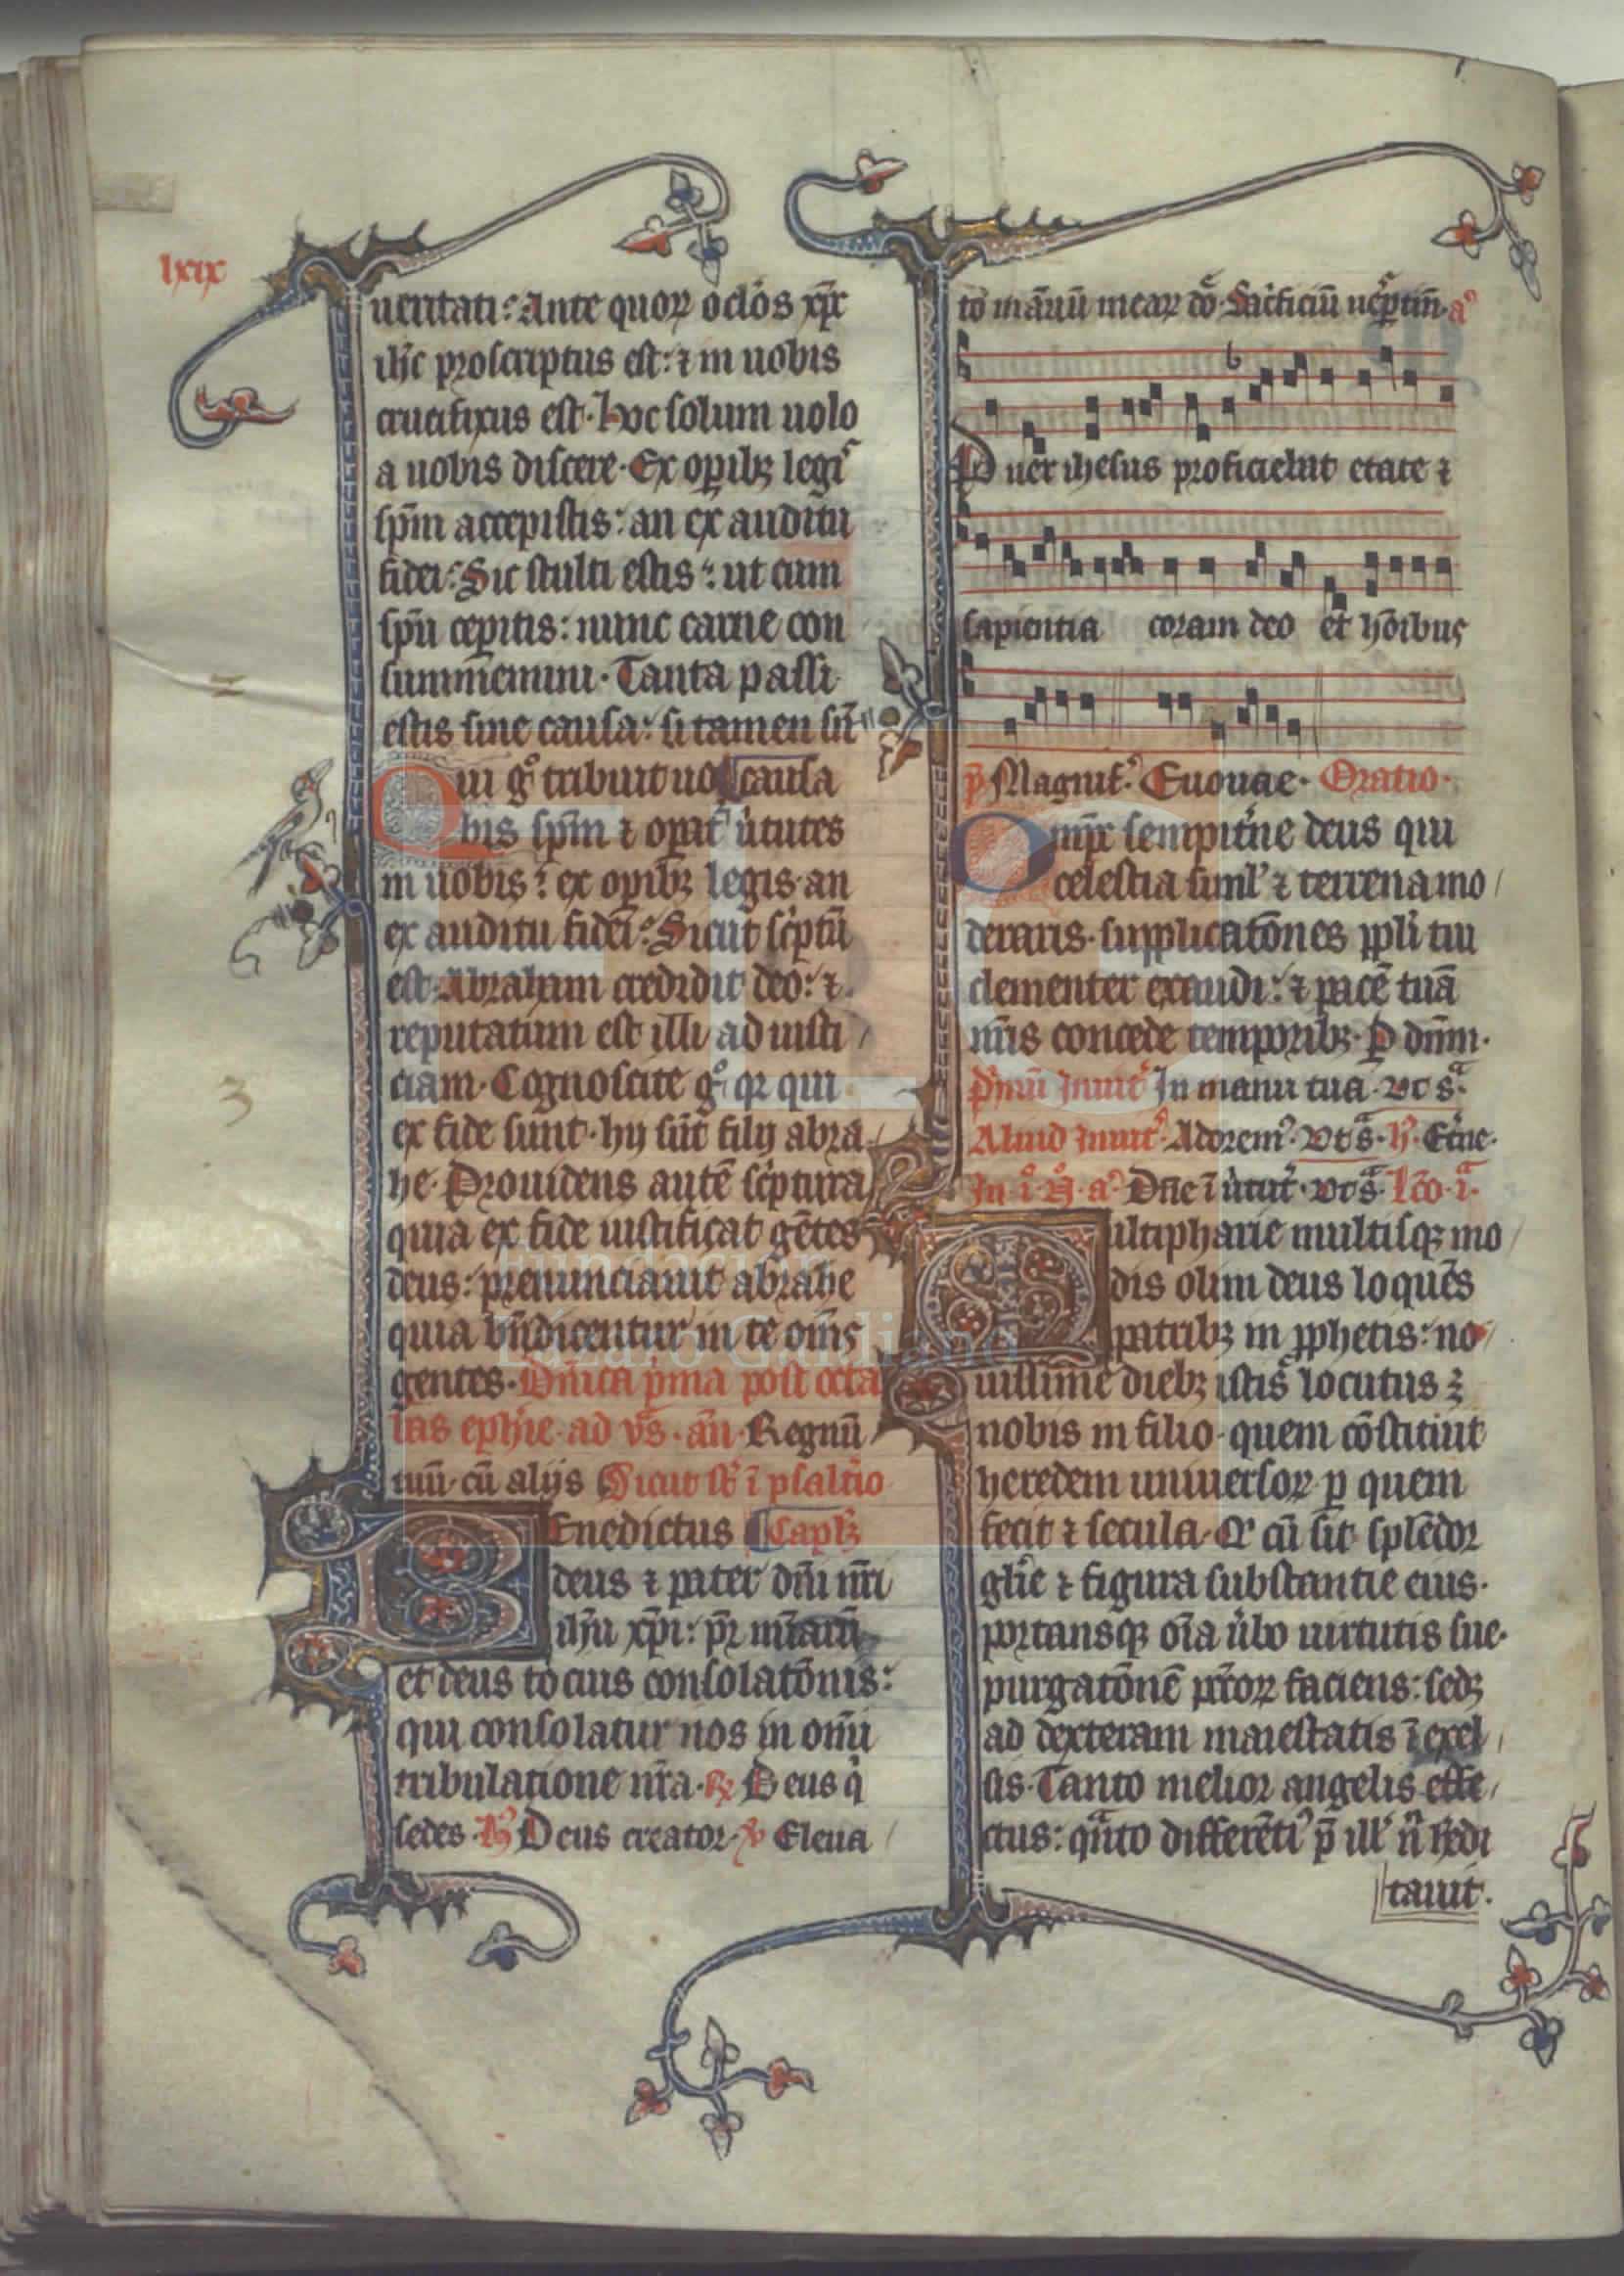 lxix
ueritati: Ante quoꝝ oc̄los xp̄c
ih̄c proscriptus est: ⁊ in uobis
crucifixus est. Hoc solum uolo
a uobis discere. Ex op̄ibꝫ legis
sp̄m accepistis: an ex auditu
fidei: Sic stulti estis: ut cum
sp̄u ceperitis: nunc carne con
summemini. Tanta passi
estis sine causa: si tamen sn̄
Qui gͦ tribuit uo causa
bis sp̄m ⁊ opat᷑ ůtutes
in uobis: ex op̄ibꝫ legis. an
ex auditu fidei: Sicut sc̄ptū
est. Abraham credidit deo: ⁊
reputatum est illi ad iusti
ciam. Cognoscite gͦ qꝛ qui
ex fide sunt. hij sūt filij abra
he. Prouidens autē sc̄ptura
quia ex fide iustificat gētes
deus: prenunciauit abrahe
quia bn̄dicentur in te om̄s
gentes. Dn̄ica p̄ma post octa
uas eph̄ie. ad v̄s. an̄. Regnū
tuū. cū alijs Sicut st̄ ī psaltīo
Benedictus Cap̄lꝫ
deus ⁊ pater dn̄i nr̄i
ih̄u xp̄i: pr̄ mīaꝝ
et deus tocius consolatōnis:
qui consolatur nos in om̄i
tribulatione nr̄a. ℟ Deus q̇
sedes. Hͦ Deus creator. ℣ Eleua
to manūū meaꝝ dō. Sacficiū uesp̄tin̄. aͦ
Puer ihesus proficiebat etate ⁊
sapientia coram deo et hōibus
p̄ Magnif᷑. Euouae. Oratio.
Omp̄c sempit̄ne deus qui
celestia siml᷑ ⁊ terrena mo
deraris. supplicatōnes ppl̄i tui
clementer exaudi: ⁊ pacē tuā
nr̄is concede temporibꝫ. P dn̄m.
P̄mū Inuit᷑ In manu tua. vt sᷓ.
Aliud inuit᷑. Adorem᷒. vt sᷓ. hͦ. Et̄ne.
In i᷒ N̄. aͦ Dn̄e ī ůtut᷑. vt sᷓ. Lc̄o. iᷓ.
Multipharie multisqꝫ mo
dis olim deus loquēs
patribꝫ in ꝓphetis: no
uissime diebꝫ istis locutus ē
nobis in filio. quem cōstituit
heredem uniuersoꝝ. ꝑ quem
fecit ⁊ secula. Qͥ cū sit splēdor
glīe ⁊ figura substantie eius.
portansqꝫ oīa ůbo uirtutis sue.
purgatōnē pc̄coꝝ faciens: sedꝫ
ad dexteram maiestatis ī excel
sis. Tanto melior angelis effe
ctus: qᷓnto differēti᷒ p̄ ill᷑ n̄ hedi
tauit.
Fundación
Lázaro Galdiano